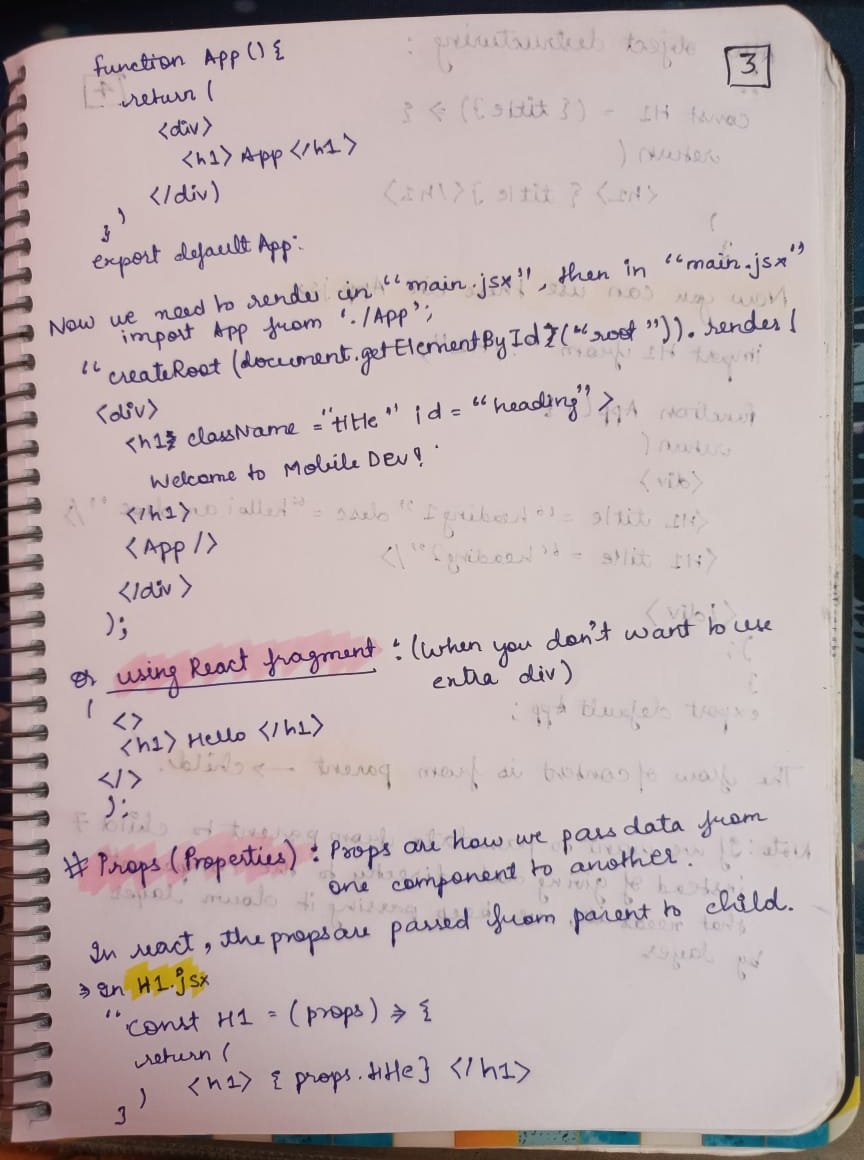 3
function App () {
return (
<div>
<h1> App </h1>
</div>
)
}
export default App;
Now we need to render in "main.jsx", then in "main.jsx"
import App from './App';
"createRoot (document.getElementById ("root")). render (
<div>
<h1 className ="title" id = "heading">
Welcome to Mobile Dev!
</h1>
<App />
</div>
);
or using React fragment : (when you don't want to use
extra div)
(
<>
<h1> Hello </h1>
</>
);
# Props (Properties) : Props are how we pass data from
one component to another.
In react, the props are passed from parent to child.
→ In H1.jsx
"const H1 = (props) => {
return (
<h1> { props.title} </h1>
)
}